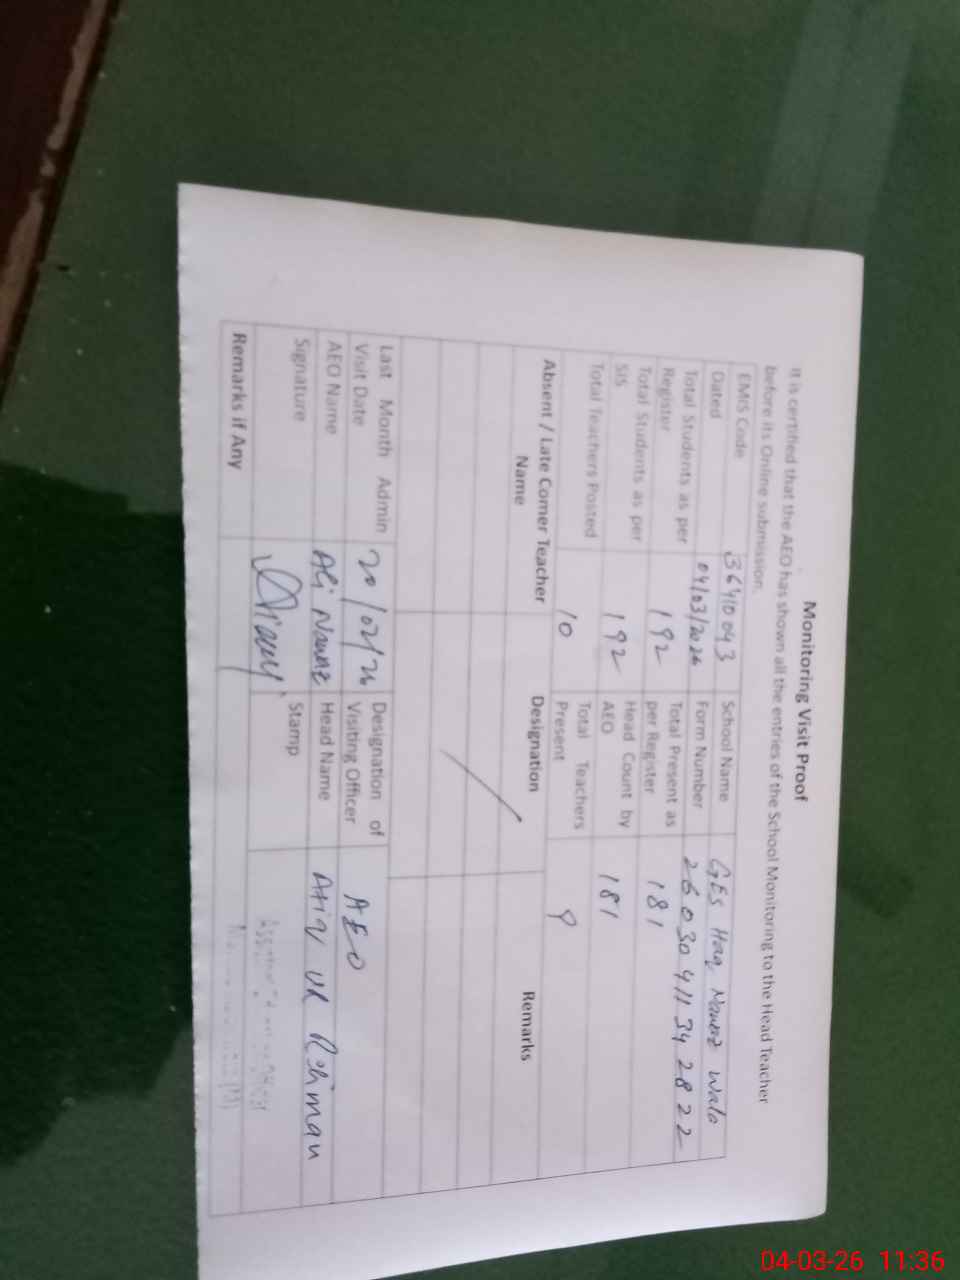 Monitoring Visit Proof
It is certified that the AEO has shown all the entries of the School Monitoring to the Head Teacher
before its Online submission.
EMIS Code 36410093 School Name GES Haq Nawaz Wala
Dated 04/03/2026 Form Number 26030411342822
Total Students as per Register 192 Total Present as per Register 181
Total Students as per SIS 192 Head Count by AEO 181
Total Teachers Posted 10 Total Teachers Present 9
Absent / Late Comer Teacher Name Designation Remarks
Last Month Admin Visit Date 20/02/26 Designation of Visiting Officer AEO
AEO Name Ali Nawaz Head Name Atiq UR Rehman
Signature Stamp
Remarks if Any
04-03-26 11:36